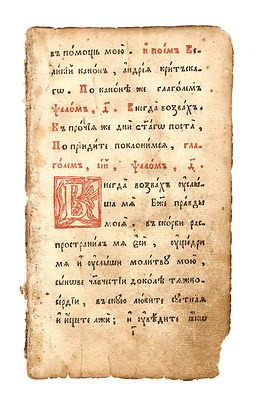 въ помощь мою̀. и҆ пое́мъ Ве-
ли́кїй кано́нъ, а҆ндре́а кри́тъска-
гѡ. По кано́нѣ же глаго́лемъ
ѱало́мъ, д҃. Внегда̀ возва́хъ.
Въ про́чїѧ же днѝ ст҃а́гѡ поста̀,
По прїиди́те поклони́мсѧ, гла-
го́лемъ, се́й, ѱало́мъ, д҃.
Внегда̀ возва́хъ оу҆слы́-
ша мѧ̀ Бж҃е пра́вды
моеѧ̀. въ ско́рби рас-
простра́нилъ мѧ̀ є҆сѝ, оу҆ще́дри
мѧ̀ и҆ оу҆слы́ши моли́тву мою̀,
сы́нове чл҃вѣ́честїи доко́лѣ тѧжко-
се́рдїи, въску́ю лю́бите суетнаѧ
и҆ и҆́щете лжѝ; и҆ оу҆вѣ́дите ꙗ҆́кѡ